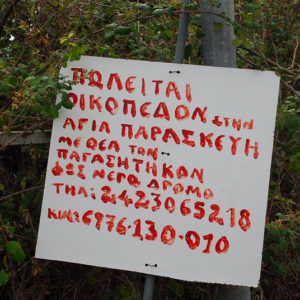 ΠΩΛΕΙΤΑΙ
ΟΙΚΟΠΕΔΟΝ ΣΤΗΝ
ΑΓΙΑ ΠΑΡΑΣΚΕΥΗ
ΜΕ ΘΕΑ ΤΟΝ
ΠΑΓΑΣΗΤΗΚΟΝ
ΦΩΣ ΝΕΡΟ ΔΡΟΜΟ
ΤΗΛ: 2423065218
ΚΙΝ: 6976-130-010